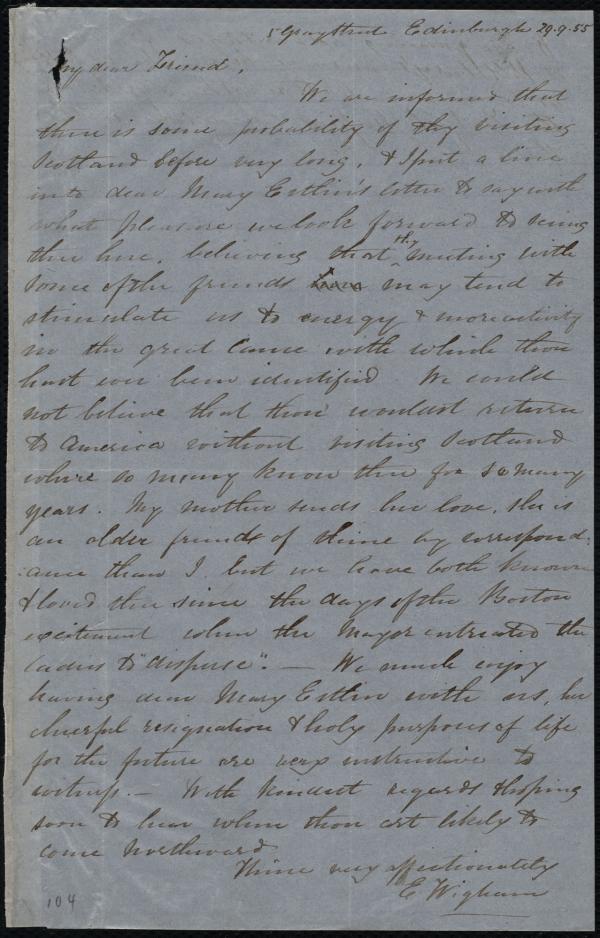 5 Gray Street Edinburgh 29.9.55
My dear Friend,
We are informed that
there is some probability of thy visiting
Scotland before very long, & I put a line
into dear Mary Estlin's letter to say with
what pleasure we look forward to seeing
thee here, believing that thy meeting with
some of the friends here may tend to
stimulate us to energy & more activity
in the great cause with which thou
hast ever been identified. We could
not believe that thou wouldst return
to America without visiting Scotland
where so many know thee for so many
years. My mother sends her love, she is
an older friend of thine by correspond:
:ance than I, but we have both known
& loved thee since the days of the Boston
excitement when the Mayor entreated the
ladies to "disperse". — We much enjoy
having dear Mary Estlin with us, her
cheerful resignation & holy purposes of life
for the future are very instructive to
witness. — With kindest regards & hoping
soon to hear when thou art likely to
come Northward
Thine very affectionately
E Wigham
104